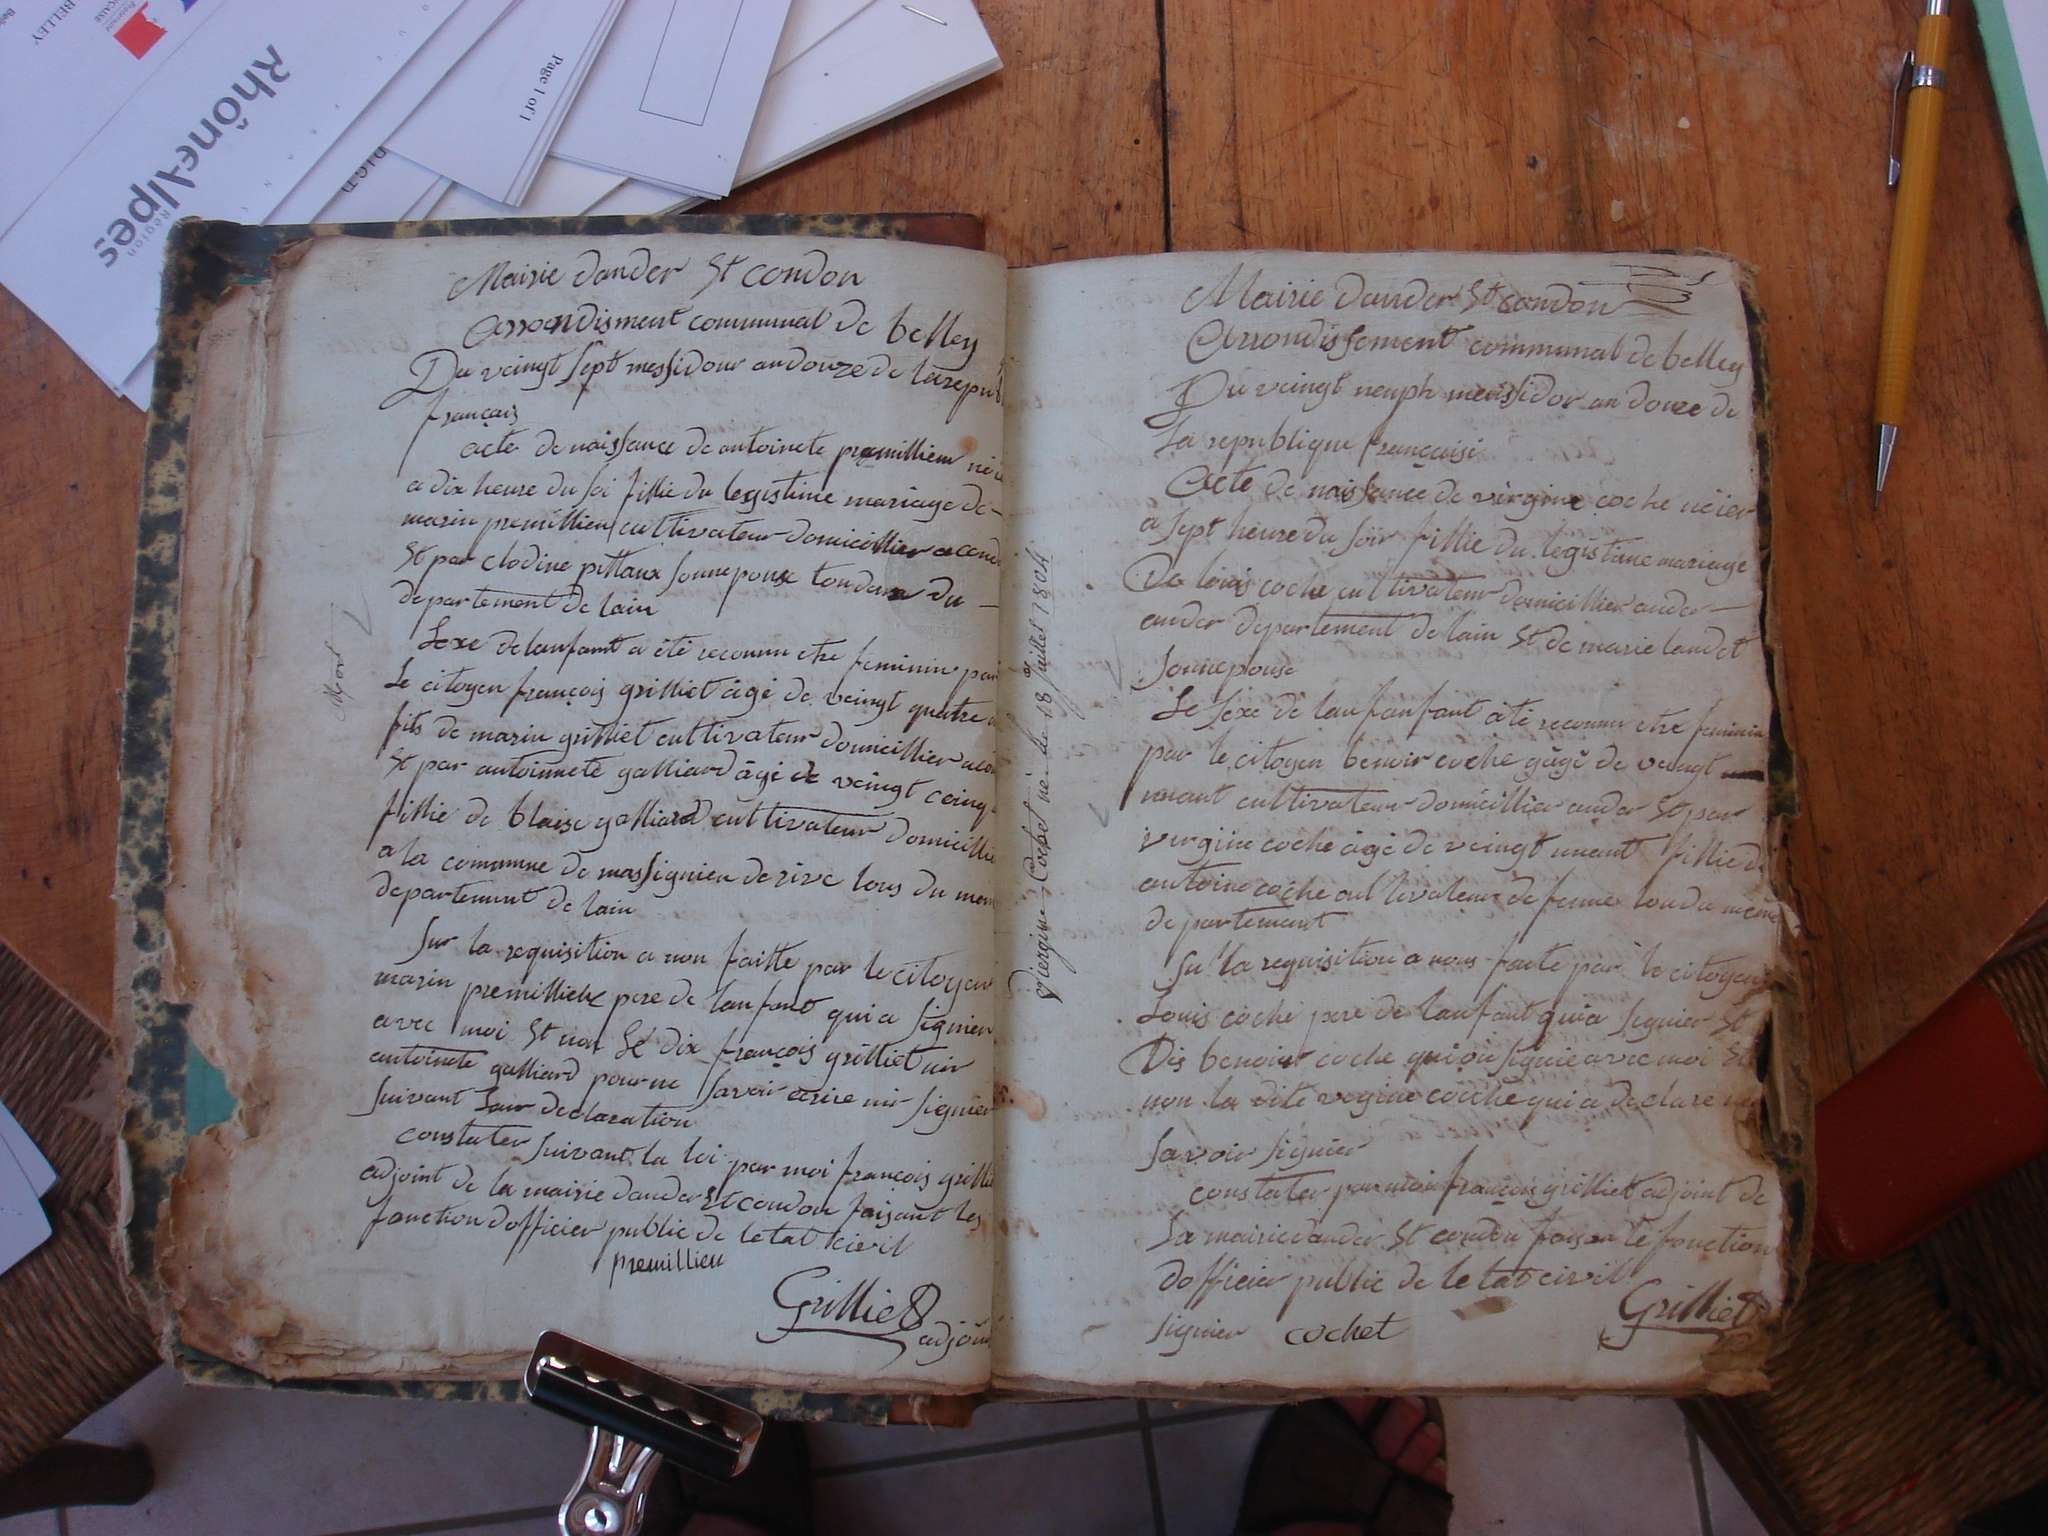 BELLEY
Rhône-Alpes
Région
Page 1 of 1
Mairie dander St condon
arrondisment communal de belley
Du veingt sept messidour an douze de la repub
français
acte de naissance de antoinete premillieu né
a dix heure du soi fillie du legistime mariage de
marin premillieu cultivateur domicillier a cond
St par clodine pittaux sonnepouse tou deux du
departement de lain
Mort
Sexe de lanfant a été reconnu etre feminin par
Le citoyen françois grilliet âgé de veingt quatre
fils de marin grilliet cultivateur domicillier a con
St par antoinnete galliard âgé de veingt ceinq
fillie de blaise galliard cultivateur domicillie
a la commune de massignieu de rive tous du mem
departement de lain
Sur la requisition a nou faitte par le citoyen
marin premillieu pere de lanfant qui a signier
avec moi St non le dix françois grilliet nir
antoinete galliard pour ne savoir écrire nir signier
suivant leur declaration
constater suivant la loi par moi françois grillie
adjoint de la mairie dander St condon faisant les
fonction dofficier public de letat cievil
premillieu
Grilliet
adjoin
Viergine Cochet née le 18 Juillet 1804
Mairie dander St condon
Arrondissement communal de belley
Du veingt neuph messidor an douze de
la republique françaisi
Acte de naissance de virgine coche né ier
a sept heure du soir fillie du legistime mariage
De louis coche cultivateur domicillier ander
ander departement de lain St de marie landet
sonnepouse
Le sexe de lanfanfant a été reconnu etre feminin
par le citoyen benoir coche âgé de veingt
unant cultivateur domicillier ander St par
virgine coche âgé de veingt unant fillie de
antoine coche cultivateur de tou du meme
departement
Su la requisition a nous faite par le citoyen
Louis coche pere de lanfant qui a signier St
Dis benoir coche qui a signie avec moi St
non la dite vegine coche qui a declare ne
savoir signier
constater par moi françois grilliet adjoint de
La mairie dander St condon faisan le fonction
dofficier public de le tat civil
signier cochet
Grilliet